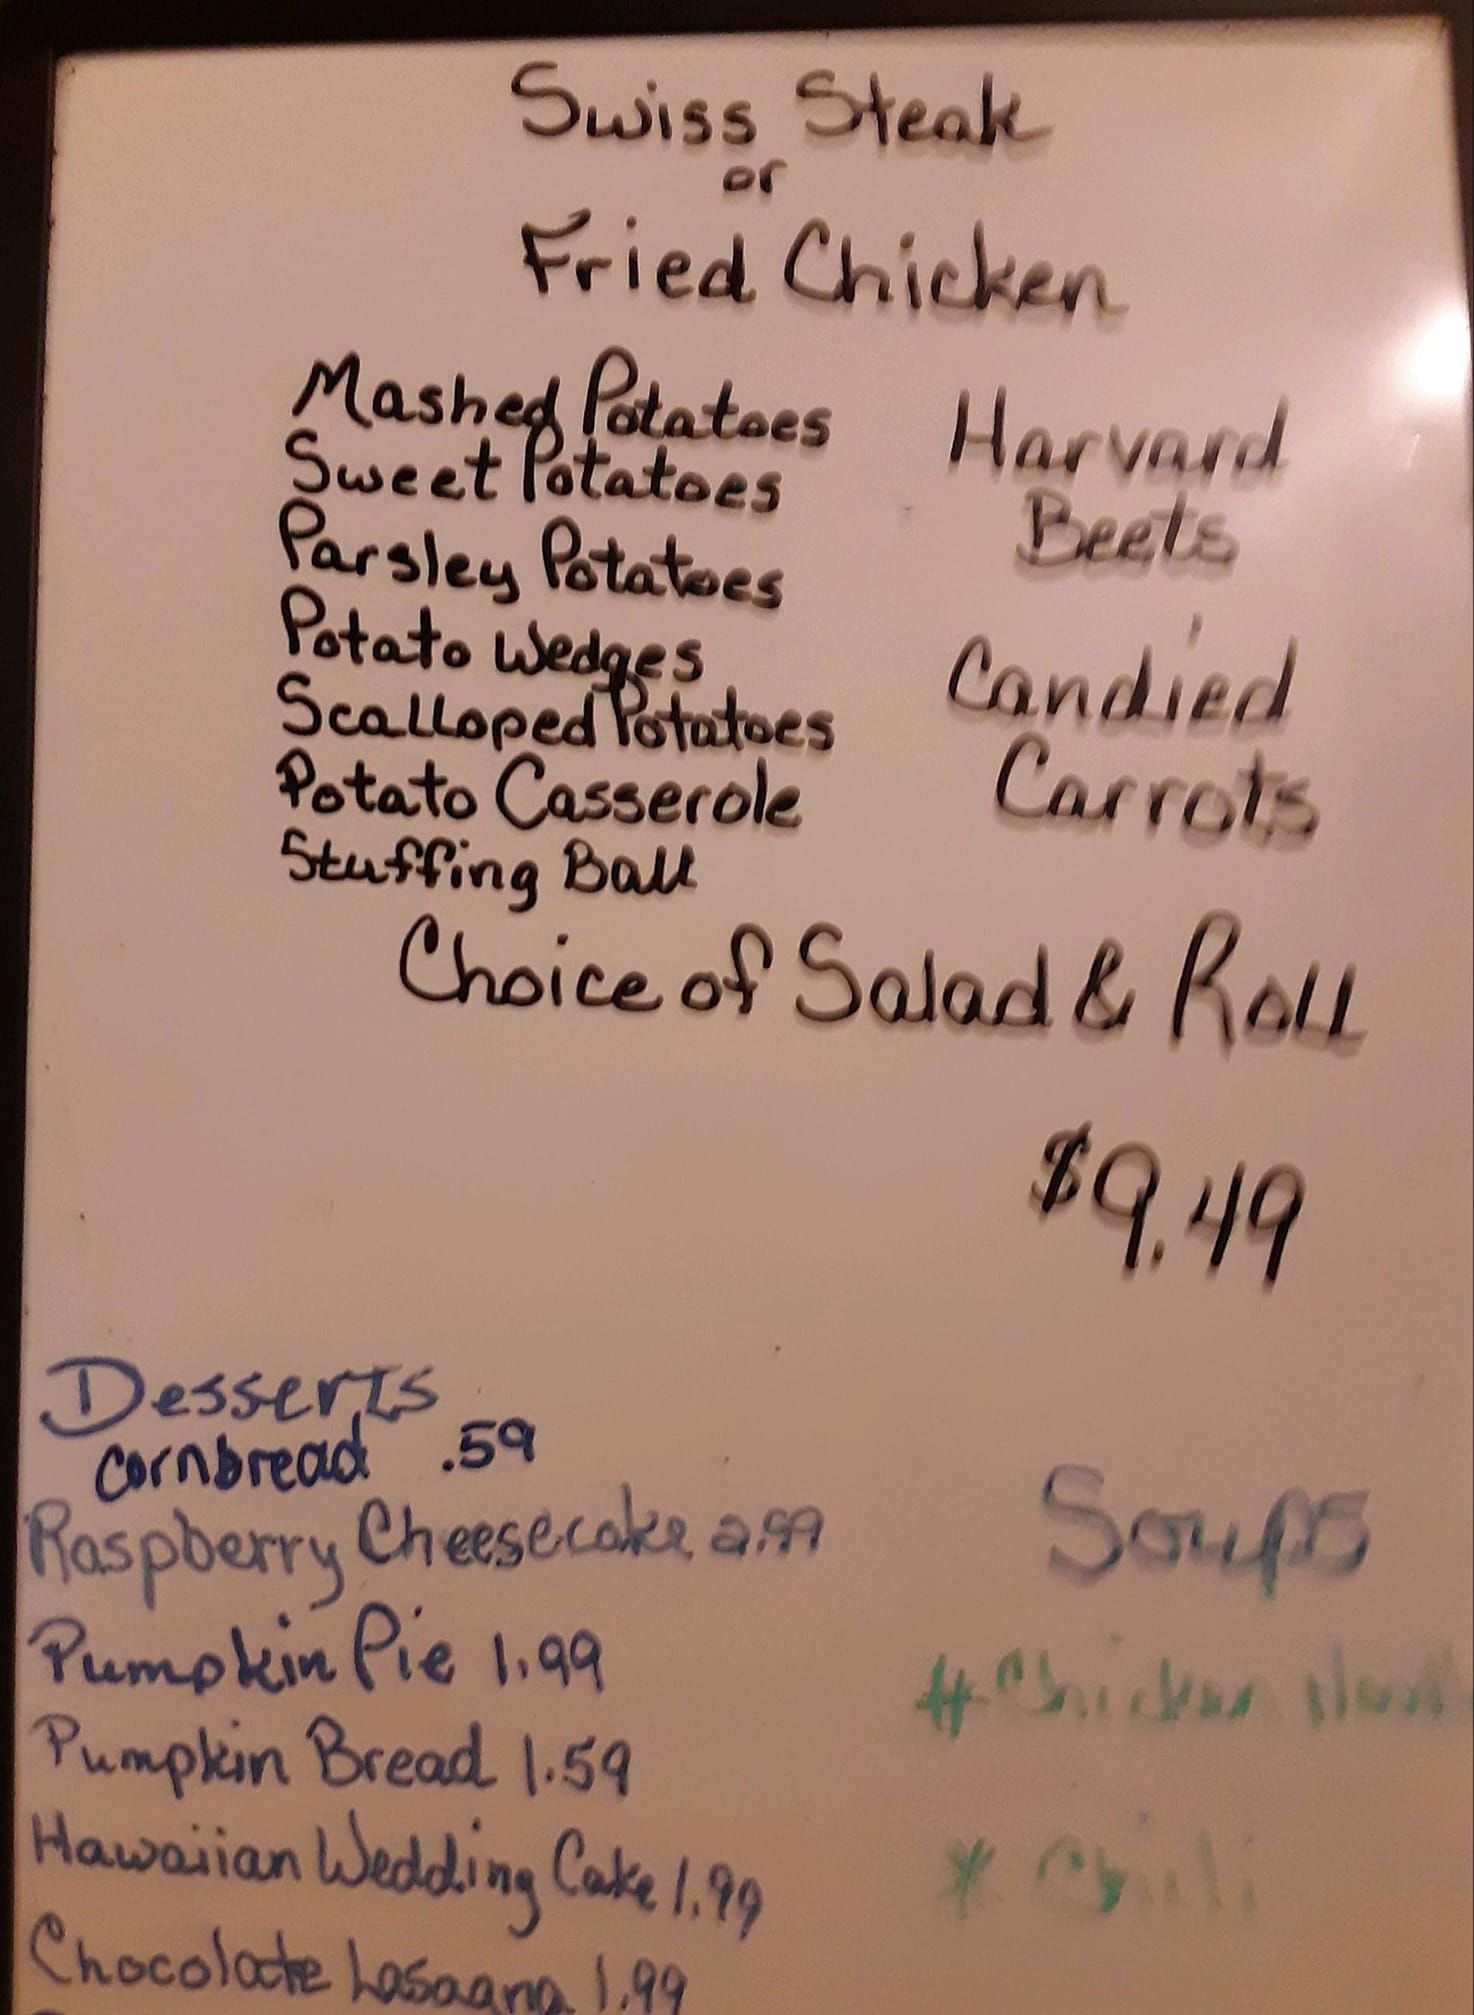 Swiss Steak
or
Fried Chicken
Mashed Potatoes
Sweet Potatoes
Parsley Potatoes
Potato Wedges
Scalloped Potatoes
Potato Casserole
Stuffing Ball
Harvard
Beets
Candied
Carrots
Choice of Salad & Roll
$9.49
Desserts
Cornbread .59
Raspberry Cheesecake 2.99
Pumpkin Pie 1.99
Pumpkin Bread 1.59
Hawaiian Wedding Cake 1.99
Chocolate Lasagna 1.99
Soups
* Chicken
* Chili